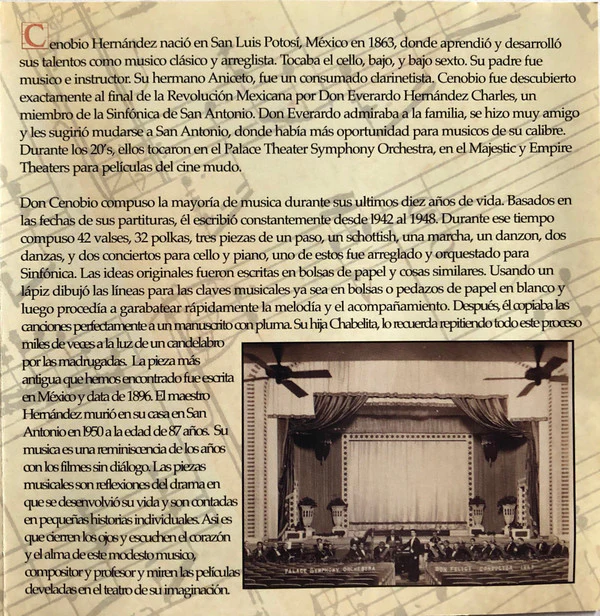 Cenobio Hernández nació en San Luis Potosí, México en 1863, donde aprendió y desarrolló
sus talentos como musico clásico y arreglista. Tocaba el cello, bajo, y bajo sexto. Su padre fue
musico e instructor. Su hermano Aniceto, fue un consumado clarinetista. Cenobio fue descubierto
exactamente al final de la Revolución Mexicana por Don Everardo Hernández Charles, un
miembro de la Sinfónica de San Antonio. Don Everardo admiraba a la familia, se hizo muy amigo
y les sugirió mudarse a San Antonio, donde había más oportunidad para musicos de su calibre.
Durante los 20's, ellos tocaron en el Palace Theater Symphony Orchestra, en el Majestic y Empire
Theaters para películas del cine mudo.
Don Cenobio compuso la mayoría de musica durante sus ultimos diez años de vida. Basados en
las fechas de sus partituras, él escribió constantemente desde 1942 al 1948. Durante ese tiempo
compuso 42 valses, 32 polkas, tres piezas de un paso, un schottish, una marcha, un danzon, dos
danzas, y dos conciertos para cello y piano, uno de estos fue arreglado y orquestado para
Sinfónica. Las ideas originales fueron escritas en bolsas de papel y cosas similares. Usando un
lápiz dibujó las líneas para las claves musicales ya sea en bolsas o pedazos de papel en blanco y
luego procedía a garabatear rápidamente la melodía y el acompañamiento. Después, él copiaba las
canciones perfectamente a un manuscrito con pluma. Su hija Chabelita, lo recuerda repitiendo todo este proceso
miles de veces a la luz de un candelabro
por las madrugadas. La pieza más
antigua que hemos encontrado fue escrita
en México y data de 1896. El maestro
Hernández murió en su casa en San
Antonio en 1950 a la edad de 87 años. Su
musica es una reminiscencia de los años
con los filmes sin diálogo. Las piezas
musicales son reflexiones del drama en
que se desenvolvió su vida y son contadas
en pequeñas historias individuales. Asi es
que cierren los ojos y escuchen el corazón
y el alma de este modesto musico,
compositor y profesor y miren las películas
develadas en el teatro de su imaginación.
PALACE SYMPHONY ORCHESTRA DON FELICE CONDUCTOR